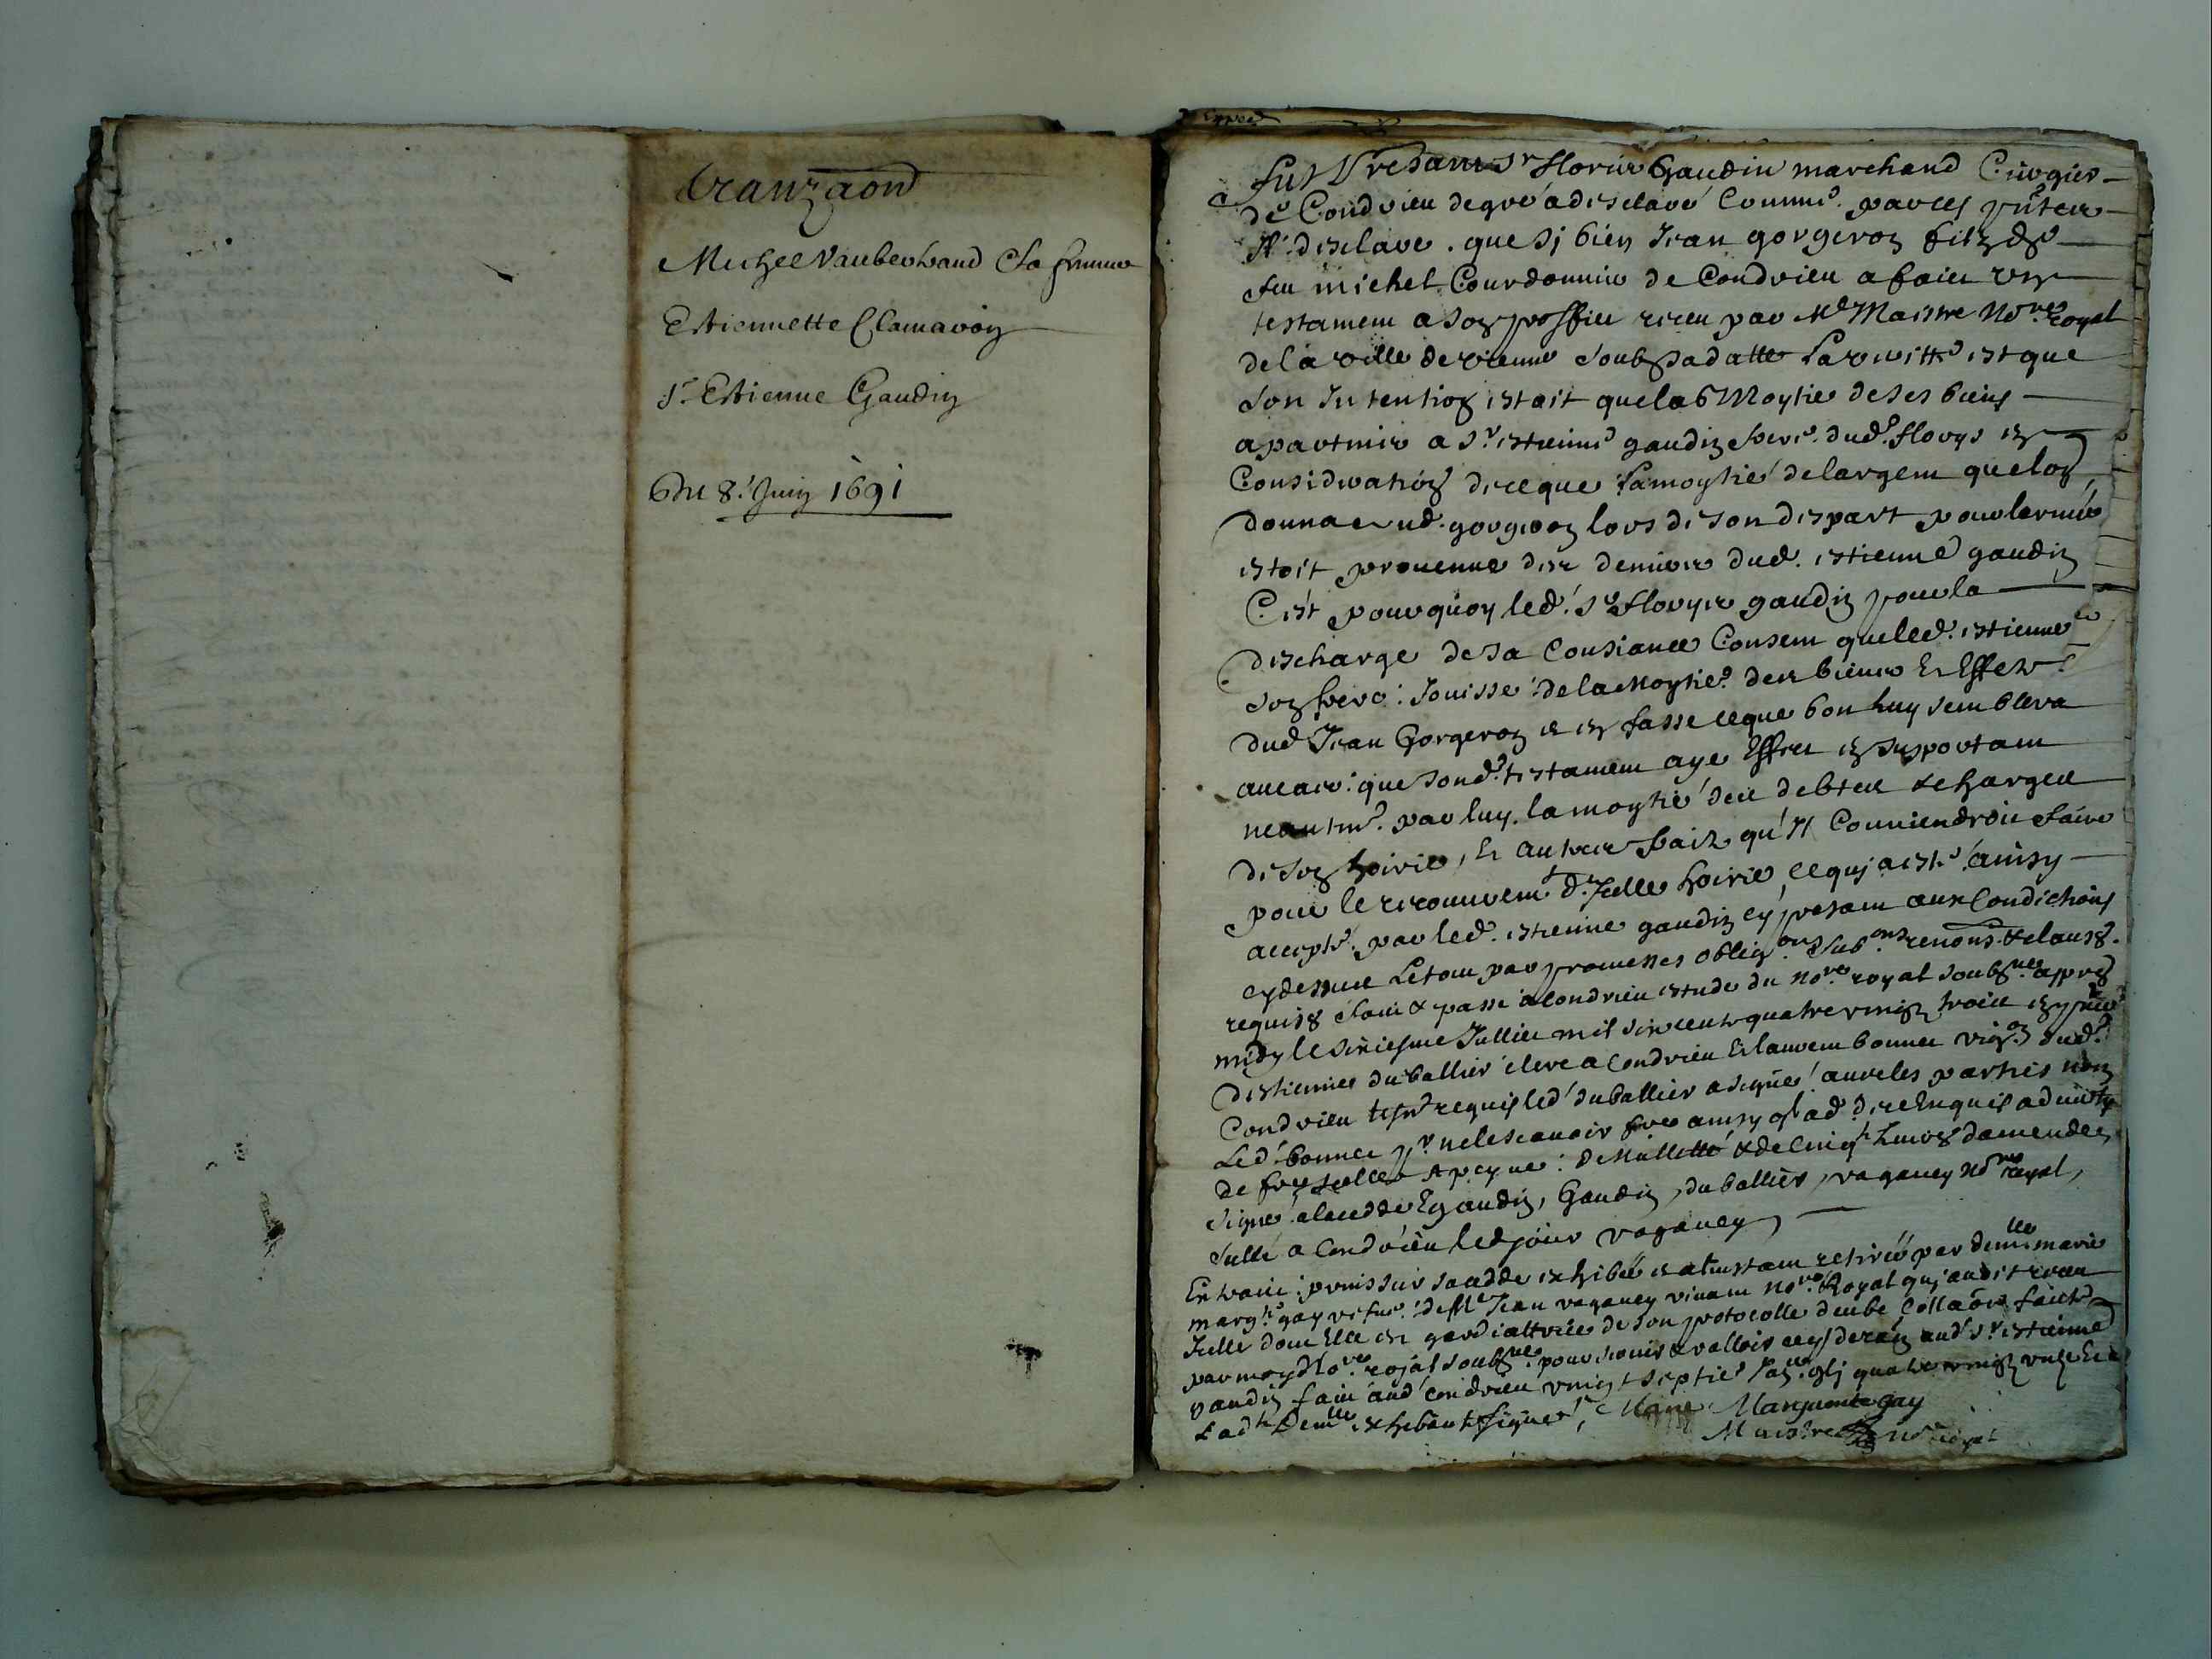 Tranzaon
Michel Vaubertrand & sa femme
Estiennette Clamaron
Sr. Estienne Gaudin
Du 8e. Juin 1691
Fust presant Sr florir Gaudin marchand Cirgier
de Condrieu de gré a desclaré comme par ces
Il desclare. que sj bien Jean gorgeron filz de
feu michel Courdonnier de Condrieu a faict un
testament a son proffict receu par Me Maistre Nore royal
de la ville de vienne soubz sa datte La veritté est que
son Intention estoit que la Moytié de ses biens
apartenir a Sr. estienne gaudin frere dud. florys en
Consideration de ce que la moytié de largent que lon
donna aud. gorgeron lors de son despart pour larmée
estoit provenue des deniers dud. estienne gaudin
C'est pourquoy led. Sr florys gaudin pour la
descharge de sa Consiance Consent que led. estienne
son frere Jouisse de la Moytié des biens Et Effetz
dud Jean Gorgeron et en fasse ce que bon luy semblera
que sond. testament aye Effect en suportant
neantms. par luy. la moytié des debtes & charges
de son hoirie, Et autres fraix qu'Il Conviendroit faire
pour le recouvremt d'Icelle hoirie, ce quj a esté ainsy
accepté par led. estienne gaudin cy presant aux Condictions
cy dessus Le tout par promesses obligons Subons renons & clauses
requises faict & passé a Condrieu estude du nore royal soubzné appres
midy le sixiesme Juillet mil six cents quatre vingtz trois en
d'estienne duballier clerc a Condrieu Et laurent bonnet vigon dud.
Condrieu tesm requis led duballier a signé avec les parties non
Led. bonnet pr. ne le scavoir
de a peyne de Nullitté & de cinq livres damende
Signé a la cedde Gaudin, Gaudin, duballier, vaganey nore royal,
Sellé a Condrieu led jour vaganey
Extraict pris sur sa cedde exhibée et a linstant retirée par demlle marie
margte gay vefve de Me Jean vaganey vivant nore Royal quj avoit receu
Icelle dont Elle est gardiattrice de son protocolle deube Collaon faicte
par moy Nore royal soubzné pour servir & valloir aud Sr. estienne
gaudin faict aud Condrieu vingt septie quatre vingtz unze Et a
Ladte Demlle exhibante signé, Marie Marguerite Gay
Maistre nore royal